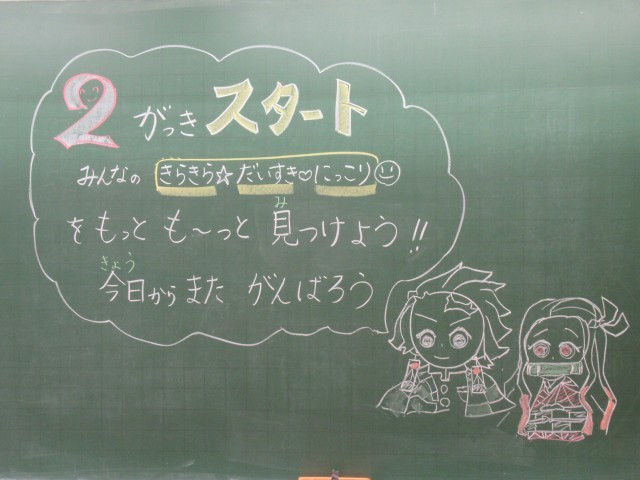 2がっきスタート
みんなの きらきら☆だいすき♡にっこり☺
をもっと も〜っと 見つけよう!!
み
今日から また がんばろう
きょう